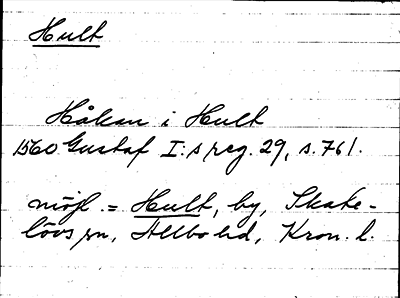 Hult
Håkan i Hult
1560 Gustaf I:s reg. 29, s. 761.
möjl = Hult, by, Skate-
lövs sn, Allbo hd, Kron. l.